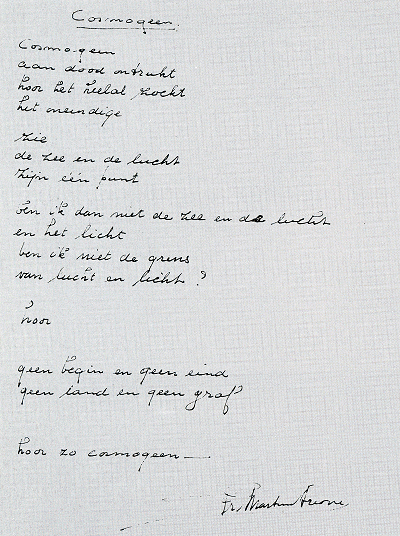 Cosmogeen.
Cosmogeen
aan dood ontrukt
hoor het heelal zoekt
het oneindige
zie
de zee en de lucht
zijn één punt
ben ik dan niet de zee en de lucht
en het licht
ben ik niet de grens
van lucht en licht ?
hoor
geen begin en geen eind
geen land en geen graf
hoor zo cosmogeen
Fr.